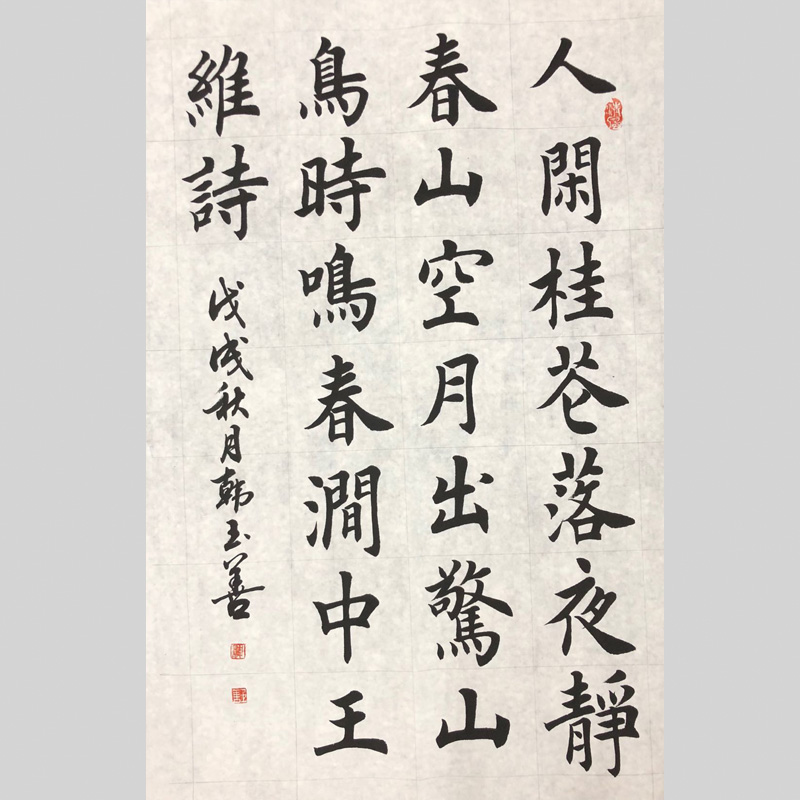 人閑桂花落夜靜
春山空月出驚山
鳥時鳴春澗中王
維詩
戊戌秋月韩玉善